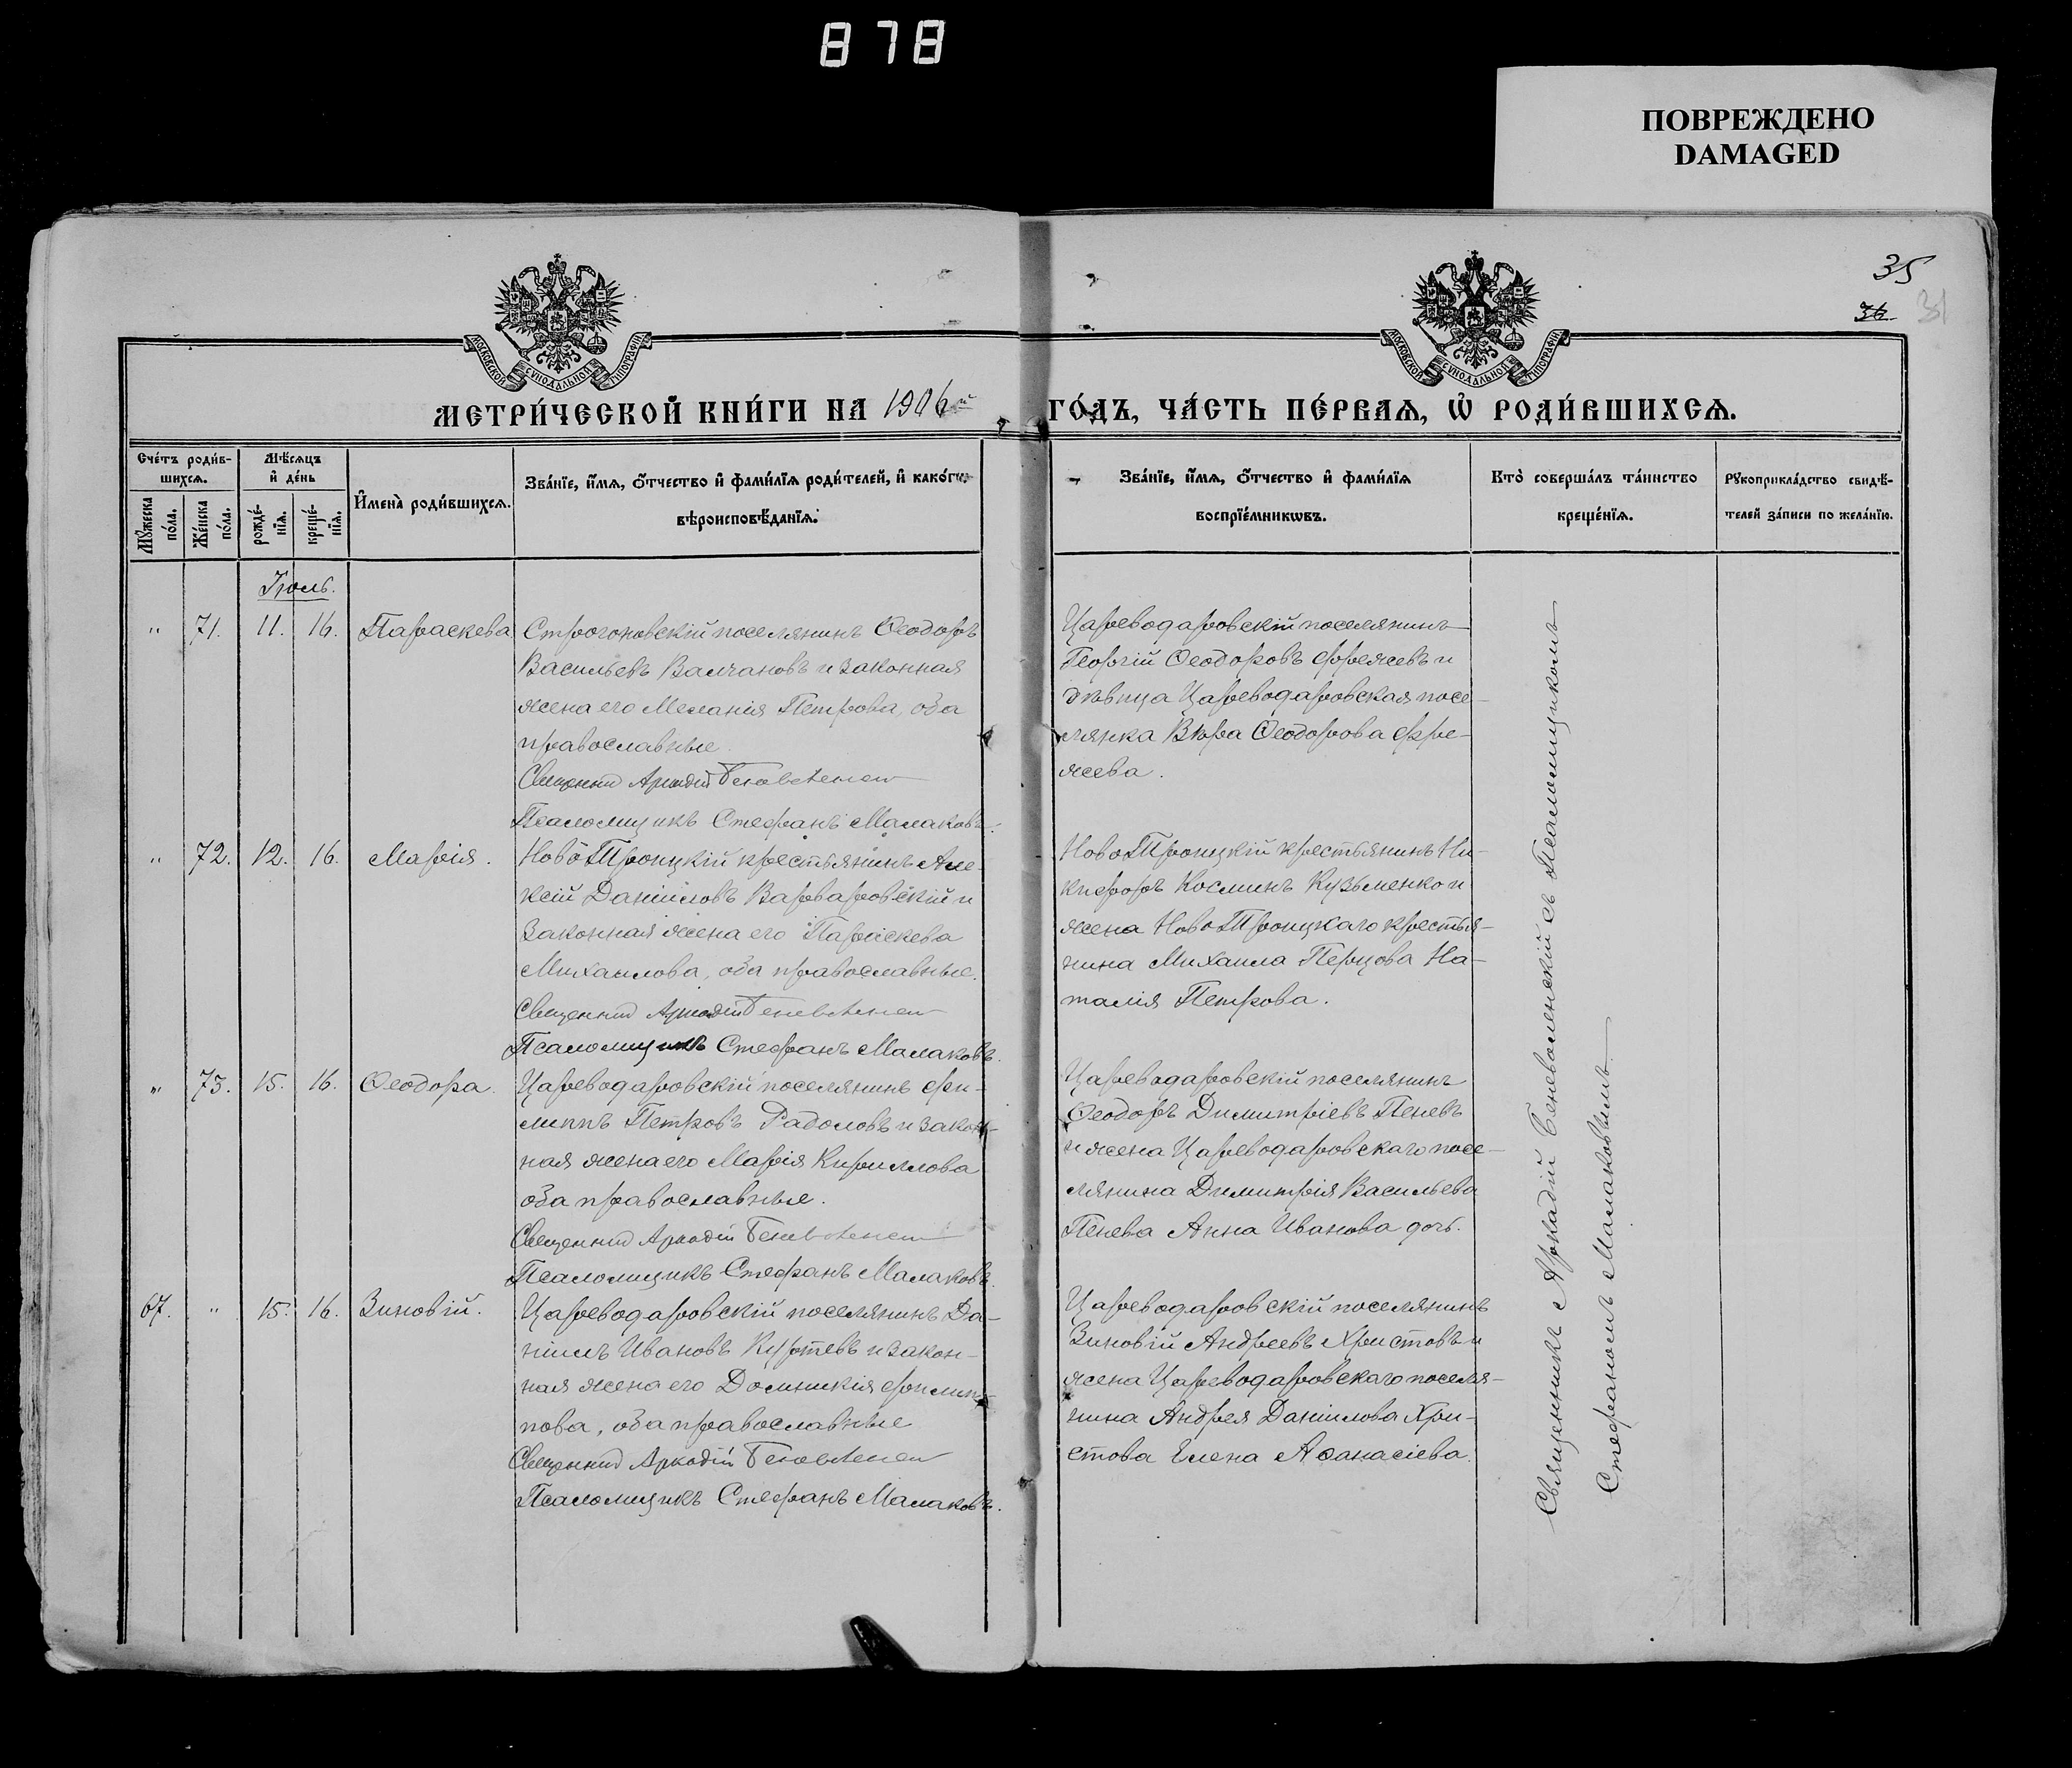 878
ПОВРЕЖДЕНО
DAMAGED
35
34.
31
МОСКОВСКОЙ СУНОДАЛЬНОЙ ТИПОГРАФІИ
МОСКОВСКОЙ СУНОДАЛЬНОЙ ТИПОГРАФІИ
МЕТРИ́ЧЕСКОЙ КНИ́ГИ НА 1906й ГО́ДЪ, ЧА́СТЬ ПЕ́РВАѦ, Ѡ РОДИ́ВШИХСѦ.
Сче́тъ роди́в-
шихсѧ.
Мѣ́сѧцъ
и҆ де́нь
Мꙋ́жеска
по́ла.
Же́нска
по́ла.
рожде́-
нїѧ.
креще́-
нїѧ.
И҆мена̀ роди́вшихсѧ.
Зва́нїе, и҆́мѧ, ѻ҆́тчество и҆ фами́лїѧ роди́телей, и҆ како́гѡ
вѣроисповѣ́данїѧ.
Зва́нїе, и҆́мѧ, ѻ҆́тчество и҆ фами́лїѧ
воспрїе́мникѡвъ.
Кто̀ соверша́лъ та́инство
креще́нїѧ.
Рꙋкоприкла́дство свидѣ́-
телей за́писи по жела́нїю.
Іюль.
" 71. 11. 16. Параскева
Строгоновскій поселянинъ Ѳеодоръ
Васильевъ Валчановъ и законная
жена его Меланія Петрова, оба
православные.
Священник Аркадій Беневоленский
Псаломщикъ Стефанъ Малаковъ.
Цареводаровскій поселянинъ
Георгій Ѳеодоровъ Фрежевъ и
дѣвица Цареводаровская посе-
лянка Вѣра Ѳеодорова Фре-
жева.
" 72. 12. 16. Марія.
НовоТроицкій крестьянинъ Але-
ксій Даніиловъ Варваровскій и
законная жена его Параскева
Михаилова, оба православные.
Священник Аркадій Беневоленский
Псаломщикъ Стефанъ Малаковъ.
НовоТроицкій крестьянинъ Ни-
кифоръ Косминъ Кузьменко и
жена НовоТроицкаго крестья-
нина Михаила Перцова На-
талія Петрова.
" 73. 15. 16. Ѳеодора.
Цареводаровскій поселянинъ Фи-
липпъ Петровъ Радоловъ и закон-
ная жена его Марія Кириллова
оба православные.
Священник Аркадій Беневоленский
Псаломщикъ Стефанъ Малаковъ.
Цареводаровскій поселянинъ
Ѳеодоръ Димитріевъ Пеневъ
и жена Цареводаровскаго посе-
лянина Димитрія Васильева
Пенева Анна Иванова дочь.
67. " 15. 16. Зиновій.
Цареводаровскій поселянинъ Да-
ніилъ Ивановъ Куртевъ и закон-
ная жена его Домникія Филип-
пова, оба православные
Священник Аркадій Беневоленский
Псаломщикъ Стефанъ Малаковъ.
Цареводаровскій поселянинъ
Зиновій Андреевъ Христовъ и
жена Цареводаровскаго поселя-
нина Андрея Даніилова Хри-
стова Елена Аѳанасіева.
Священникъ Аркадій Беневоленскій съ Псаломщикомъ
Стефаномъ Малаковымъ